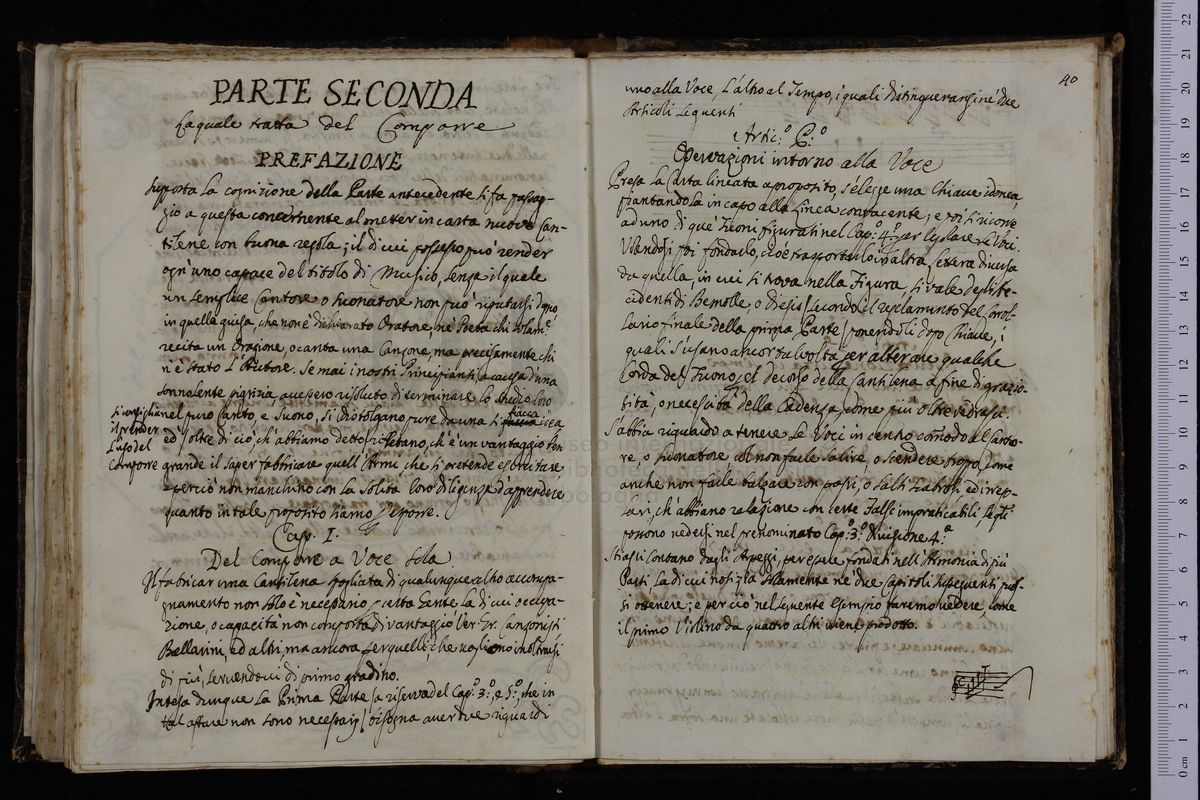 PARTE SECONDA
La quale tratta del Comporre
PREFAZIONE
Supposta la cognizione della Parte antecedente si fa passag-
gio a questa concernente al metter in carta nuove Can-
tilene con buona regola; il di cui possesso può render
ogn'uno capace del titolo di Musico, senza il quale
un semplice Cantore o Suonatore non può riputarsi degno
in quella guisa, che non è dichiarato Oratore, nè Poeta chi solam.e
recita un Orazione, o canta una Canzone, ma precisamente chi
n'è stato l'Autore. Se mai i nostri Principianti a causa d'una
sonnolente pigrizia avessero risoluto di terminare lo studio loro
nel puro Canto e Suono, si distolgano pure da una sì fiacca idea
Si consiglia
il prender
l'uso del
Comporre
ed oltre di ciò, ch'abbiamo detto, ch'è un vantaggio ben
grande il saper fabbricare quell'Armi che si pretende esercitare
e perciò non manchino con la solita loro diligenza d'apprendere
quanto in tale proposito siamo p esporre.
Cap. I.
Del Comporre a Voce Sola
Il fabricar una Cantilena spogliata di qualunque altro accompa-
gnamento non solo è necessario p certa Gente la di cui occupa-
zione, o capacità non comporta di vantaggio Ver: gr. Canzonisti
Ballarini, ed altri, ma ancora per quelli, che vogliono inoltrarsi
di più, servendoci di primo gradino.
Intesa dunque la Prima Parte (a riserva del Cap.o 3.o e 5.o che in
tal affare non sono necessarj) bisogna aver due riguardi
40
uno alla Voce, l'altro al Tempo, i quali distingueransi ne due
Articoli seguenti
Artic.o P.o
Osservazioni intorno alla Voce
Presa la Carta lineata a proposito, s'elegge una Chiave idonea,
piantandola in capo alla linea confacente; e poi si ricorre
ad uno di que' Tuoni figurati nel Cap.o 4.o per le Voci.
Volendosi poi fondarlo, cioè trasportarlo in altra lettera diversa
da quella, in cui si trova nella Figura, si vale degl'Ac-
cidenti di Bemolle, o Diesis (secondo il regolamento del Corol-
lario finale della prima Parte) ponendoli dopo Chiave, i
quali s'usano ancor talvolta per alterare qualche
Corda del Tuono nel decorso della Cantilena a fine di grazio-
sità, o necessità della Cadenza, come più oltre vedrassi.
S'abbia riguardo a tenere le Voci in centro comodo al Canto-
re, o Suonatore col non farle salire, o scendere troppo, come
anche non farle balzare con passi, o salti scabrosi, ed irrego-
lari, ch'abbiano relazione con certe False impraticabili, le q.li
possono vedersi nel prenominato Cap.o 3.o Divisione 4.a
Stiasi lontano dagli Arpeggi, per essere fondati nell'Armonia di più
Parti, la di cui notizia solamente ne due Capitoli susseguenti puos-
si ottenere; e per ciò nel seguente Esempio faremo vedere, come
il primo Violino da quattro altri viene prodotto.